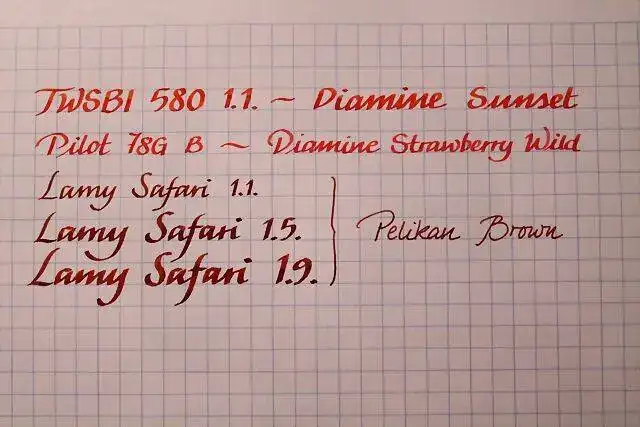 TWSBI 580 1.1. ~ Diamine Sunset
Pilot 78G B ~ Diamine Strawberry Wild
Lamy Safari 1.1.
Lamy Safari 1.5.
Lamy Safari 1.9.
Pelikan Brown